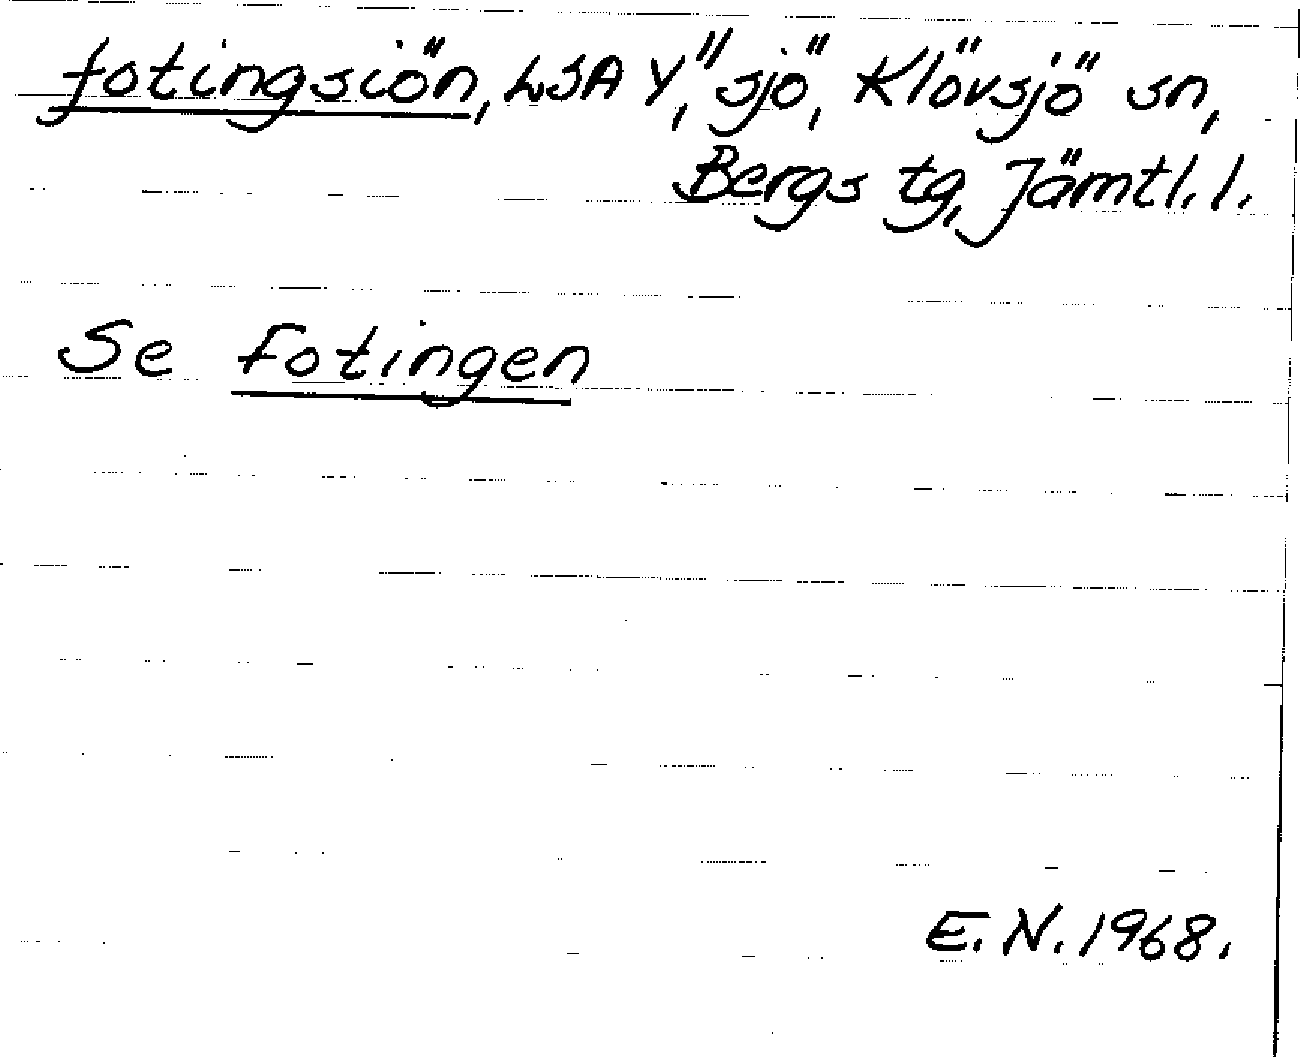 fotingsiön, LSA Y, sjö, Klövsjö sn,
Bergs tg, Jämtl. l.
Se Fotingen
E. N. 1968.